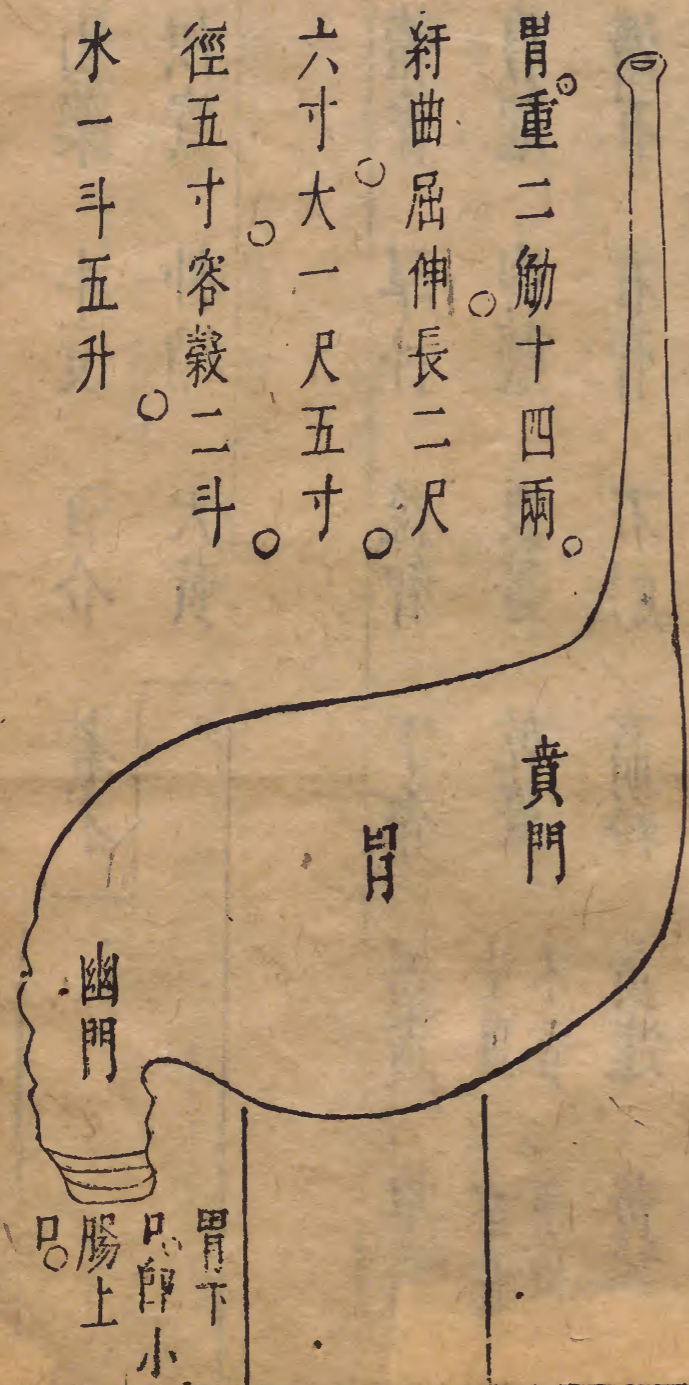 胃重二觔十四兩。
紆曲屈伸。長二尺
六寸。大一尺五寸。
徑五寸。容穀二斗。
水一斗五升。
賁門
胃
幽門
胃下
口。即小
腸上
口。